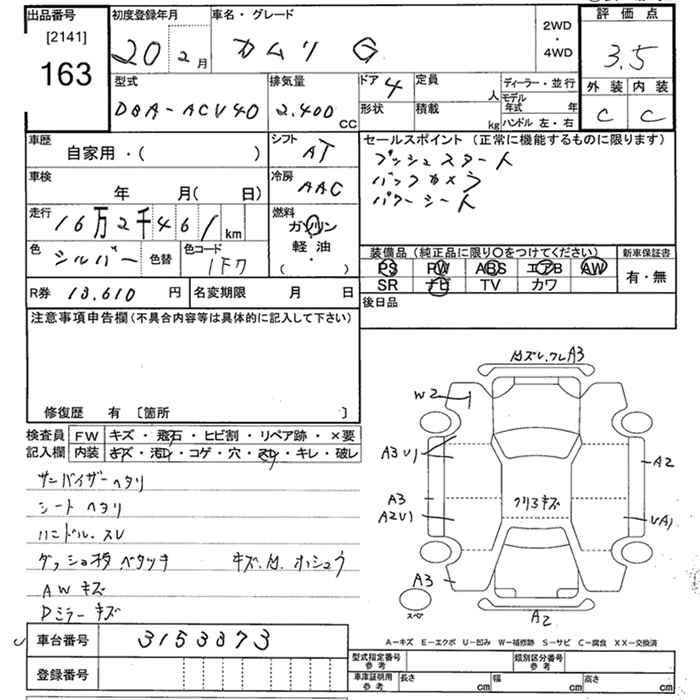 出品番号
[2141]
163
初度登録年月
20 2月
車名・グレード
カムリ G
2WD
・
4WD
評価点
3.5
外装 内装
C C
型式
DBA-ACV40
排気量
2.400
CC
ドア 4
形状
定員
人
積載
kg
ディーラー・並行
モデル年式 年
ハンドル 左・右
車歴
自家用・( )
シフト
AT
車検
年 月( 日)
冷房
AAC
走行
16万2千461 km
燃料
ガソリン
軽油
( ・ )
色
シルバー
色替
色コード
1F7
セールスポイント (正常に機能するものに限ります)
プッシュスタート
バックカメラ
パワーシート
装備品 (純正品に限り〇をつけてください)
PS PW ABS エアB AW
SR ナビ TV カワ
新車保証書
有・無
R券 13,610 円
名変期限 月 日
後日品
注意事項申告欄 (不具合内容等は具体的に記入して下さい)
修復歴 有 [箇所 ]
検査員
記入欄
FW キズ・飛石・ヒビ割・リペア跡・×要
内装 キズ・汚れ・コゲ・穴・スレ・キレ・破レ
サンバイザーヘタリ
シートヘタリ
ハンドル.スレ
ダッシュ板ベタツキ
AWキズ
Dミラーキズ
車台番号 3153373
登録番号
A3
W2
A3 U1
A2
A3
A2U1
クリヌキズ
UA1
A3
スペア
A2
A-キズ E-エクボ U-凹み W-補修跡 S-サビ C-腐食 XX-交換済
型式指定番号
参考
類別区分番号
参考
車庫証明用
参考
長さ cm
幅 cm
高さ cm